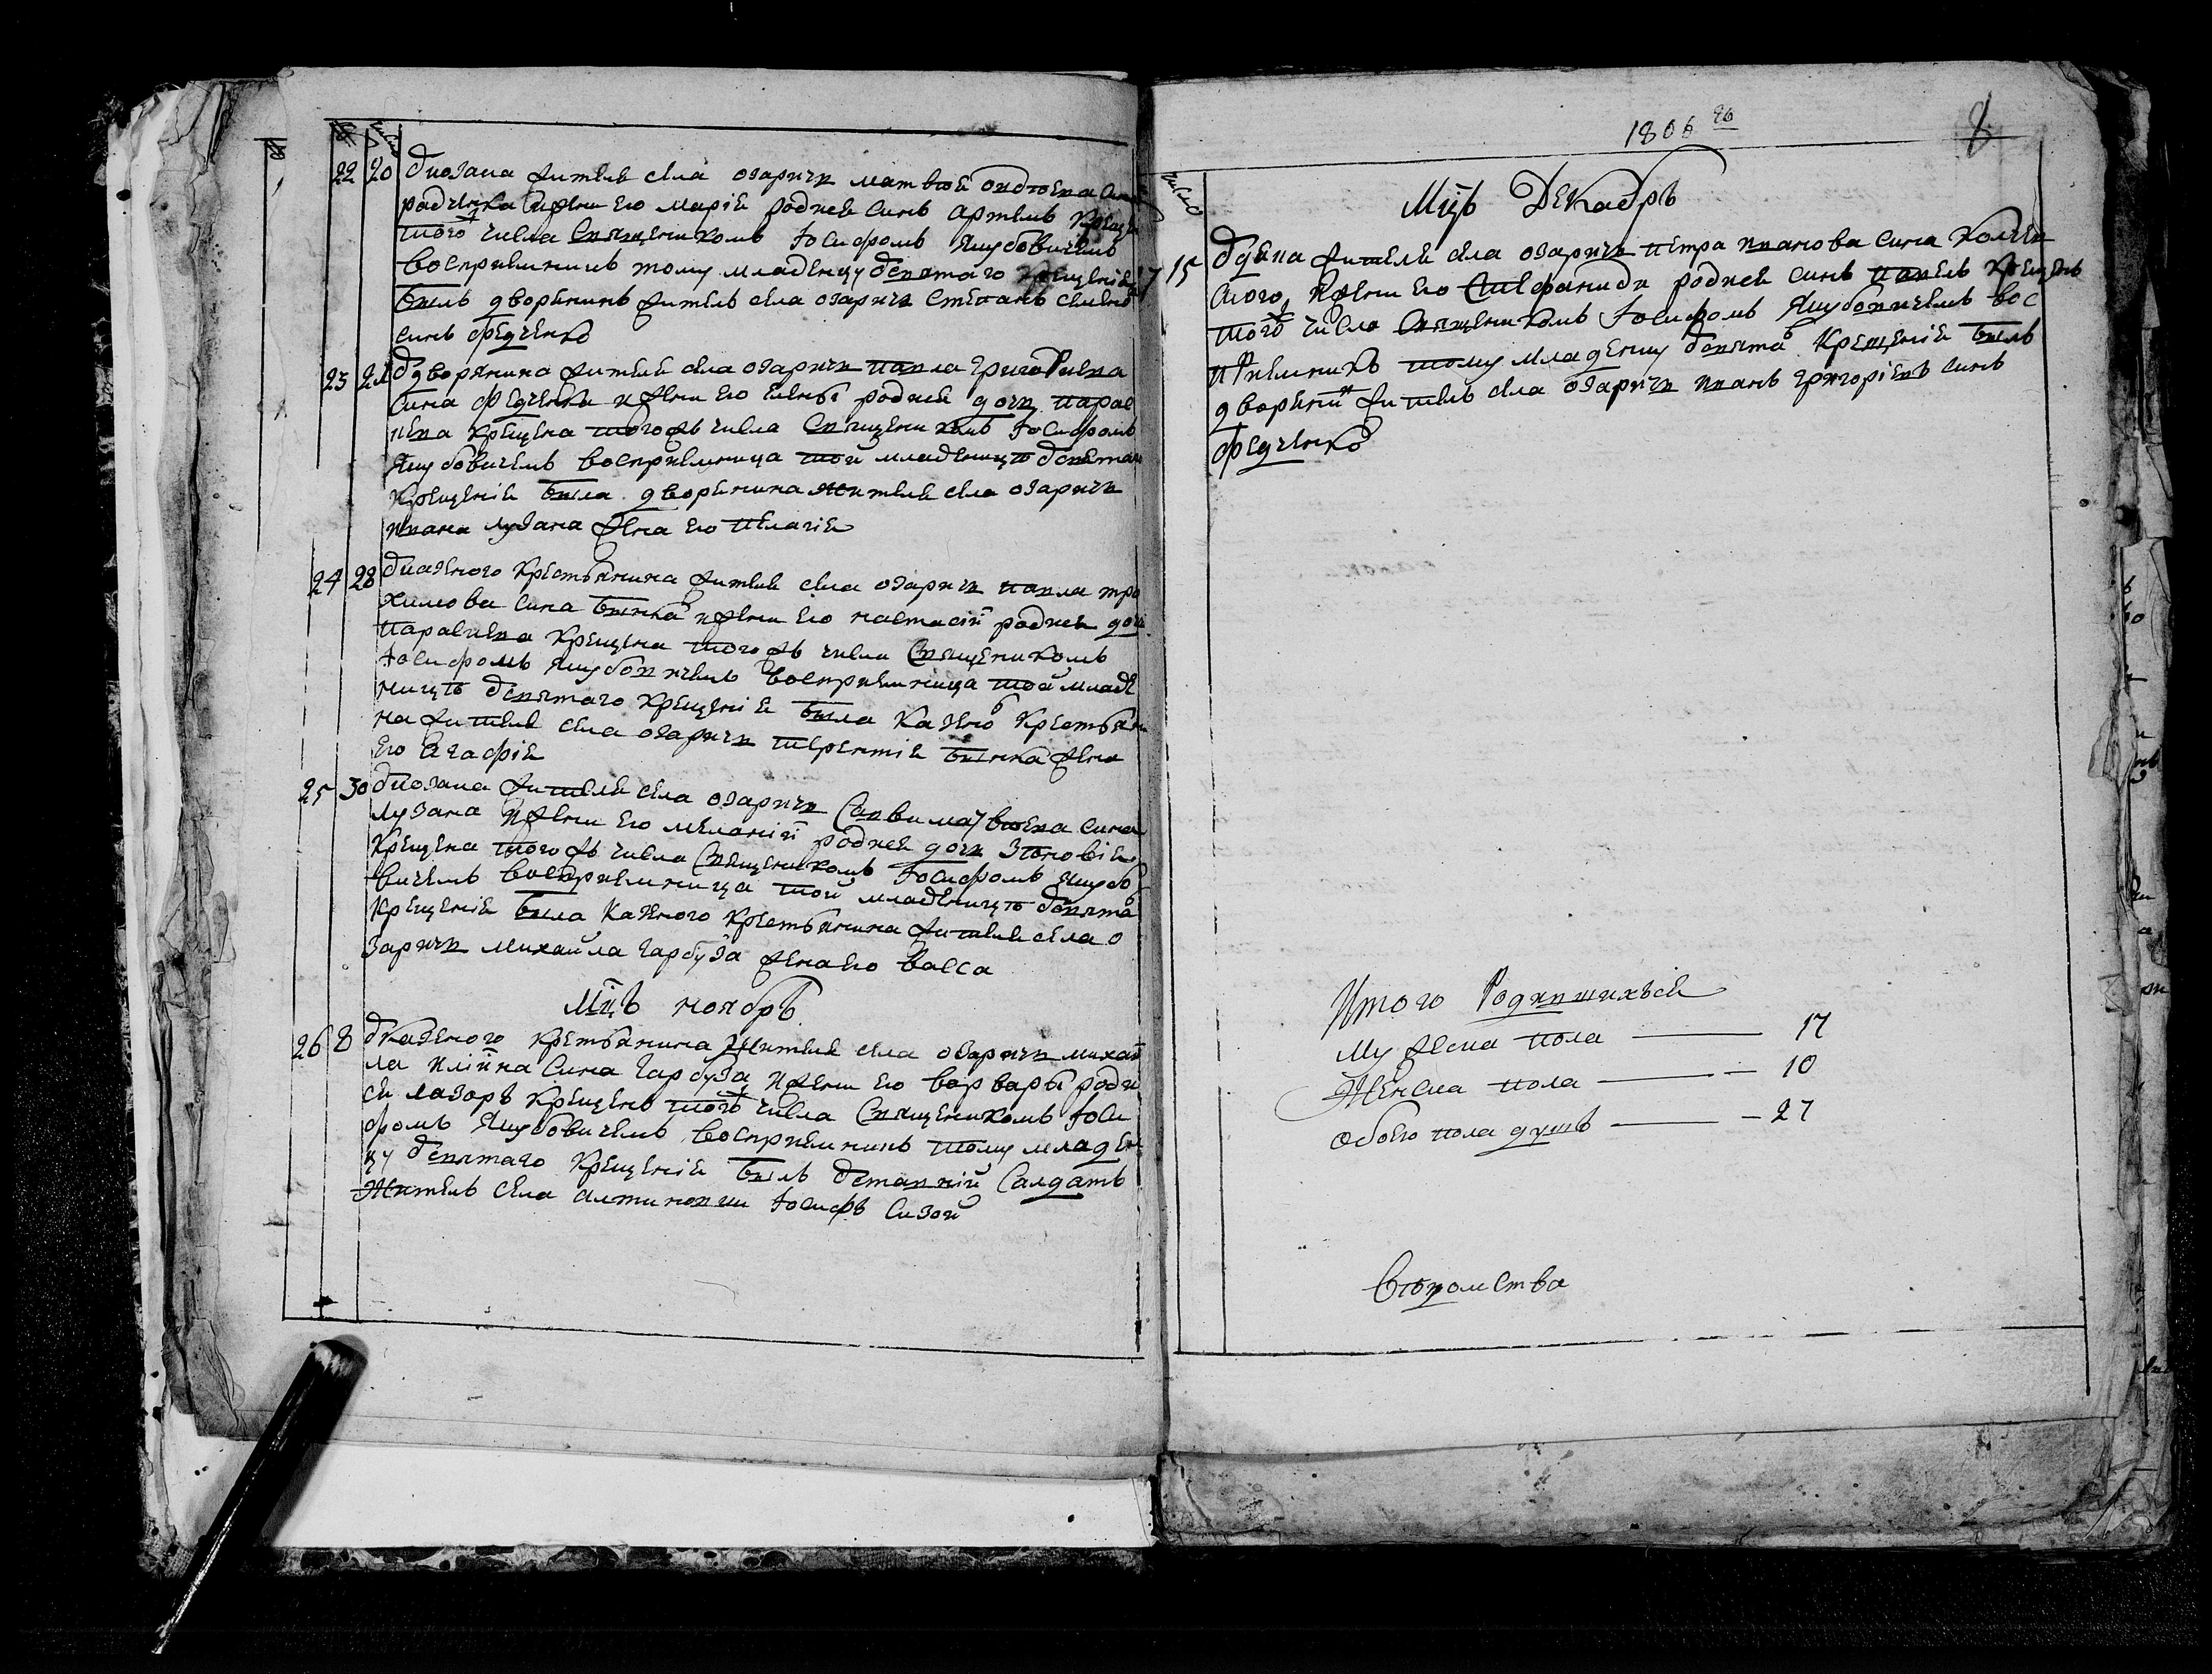 число
22 20 У козака жителя села озаричи матвея авдѣева сина
радченка и жени его марiи родися синъ артемъ крещенъ
того ж числа Священикомъ Иосифомъ Якубовичемъ
восприемникъ тому младенцу святаго крещенiя
былъ дворенинъ житель села озаричи степанъ
синъ федченко
23 21 У дворянина жителя села озаричи павла григориева
сина федченка и жени его елены родися дочь параскева
крещена того жъ числа Священикомъ Иосифомъ
Якубовичемъ восприемница той младеницѣ святаго
крещенiя была дворенина жителя села озаричи
ивана лузана жена его пелагiя
24 28 У казеного крестьянина жителя села озаричи павла тро
химова сина и жени его настасiи родися дочь
параскева крещена того жъ числа Священикомъ
Иосифомъ Якубовичемъ восприемница той младе
ницѣ святаго крещенiя была казеного крестьяни
на жителя села озаричи терентiя жена
его агафiя
25 30 У козака жителя села озаричи Саввы матвѣева сина
лузана и жени его меланiи родися дочь Зѣновiя
крещена того жъ числа Священикомъ Иосифомъ Якубо
вичемъ восприемница той младеницѣ святаго
крещенiя была казеного крестьянина жителя села о
заричи михайла гарбуза жена его васса
Мцъ ноябръ
26 8 У казеного крестьянина жителя села озаричи михай
ла илiина сина гарбуза и жени его варвары роди
ся лазоръ крещенъ того ж числа Священикомъ Иоси
фомъ Якубовичемъ восприемникъ тому младен
цу святаго крещенiя былъ отставнiй Салдатъ
житель села алтиновки Иосифъ Сизой
1806 го
8
число
Мцъ Декабръ
27 15 У жителя села озаричи петра иванова сина
и жени его Стефаниди родися синъ павелъ крещенъ
того ж числа Священикомъ Иосифомъ Якубовичемъ вос
приемникъ тому младенцу святаго крещенiя былъ
дворенин житель села озаричи иванъ григорiевъ синъ
федченко
Итого Родившихъся
Мужеска пола — 17
Женска пола — 10
обоего пола душъ — 27